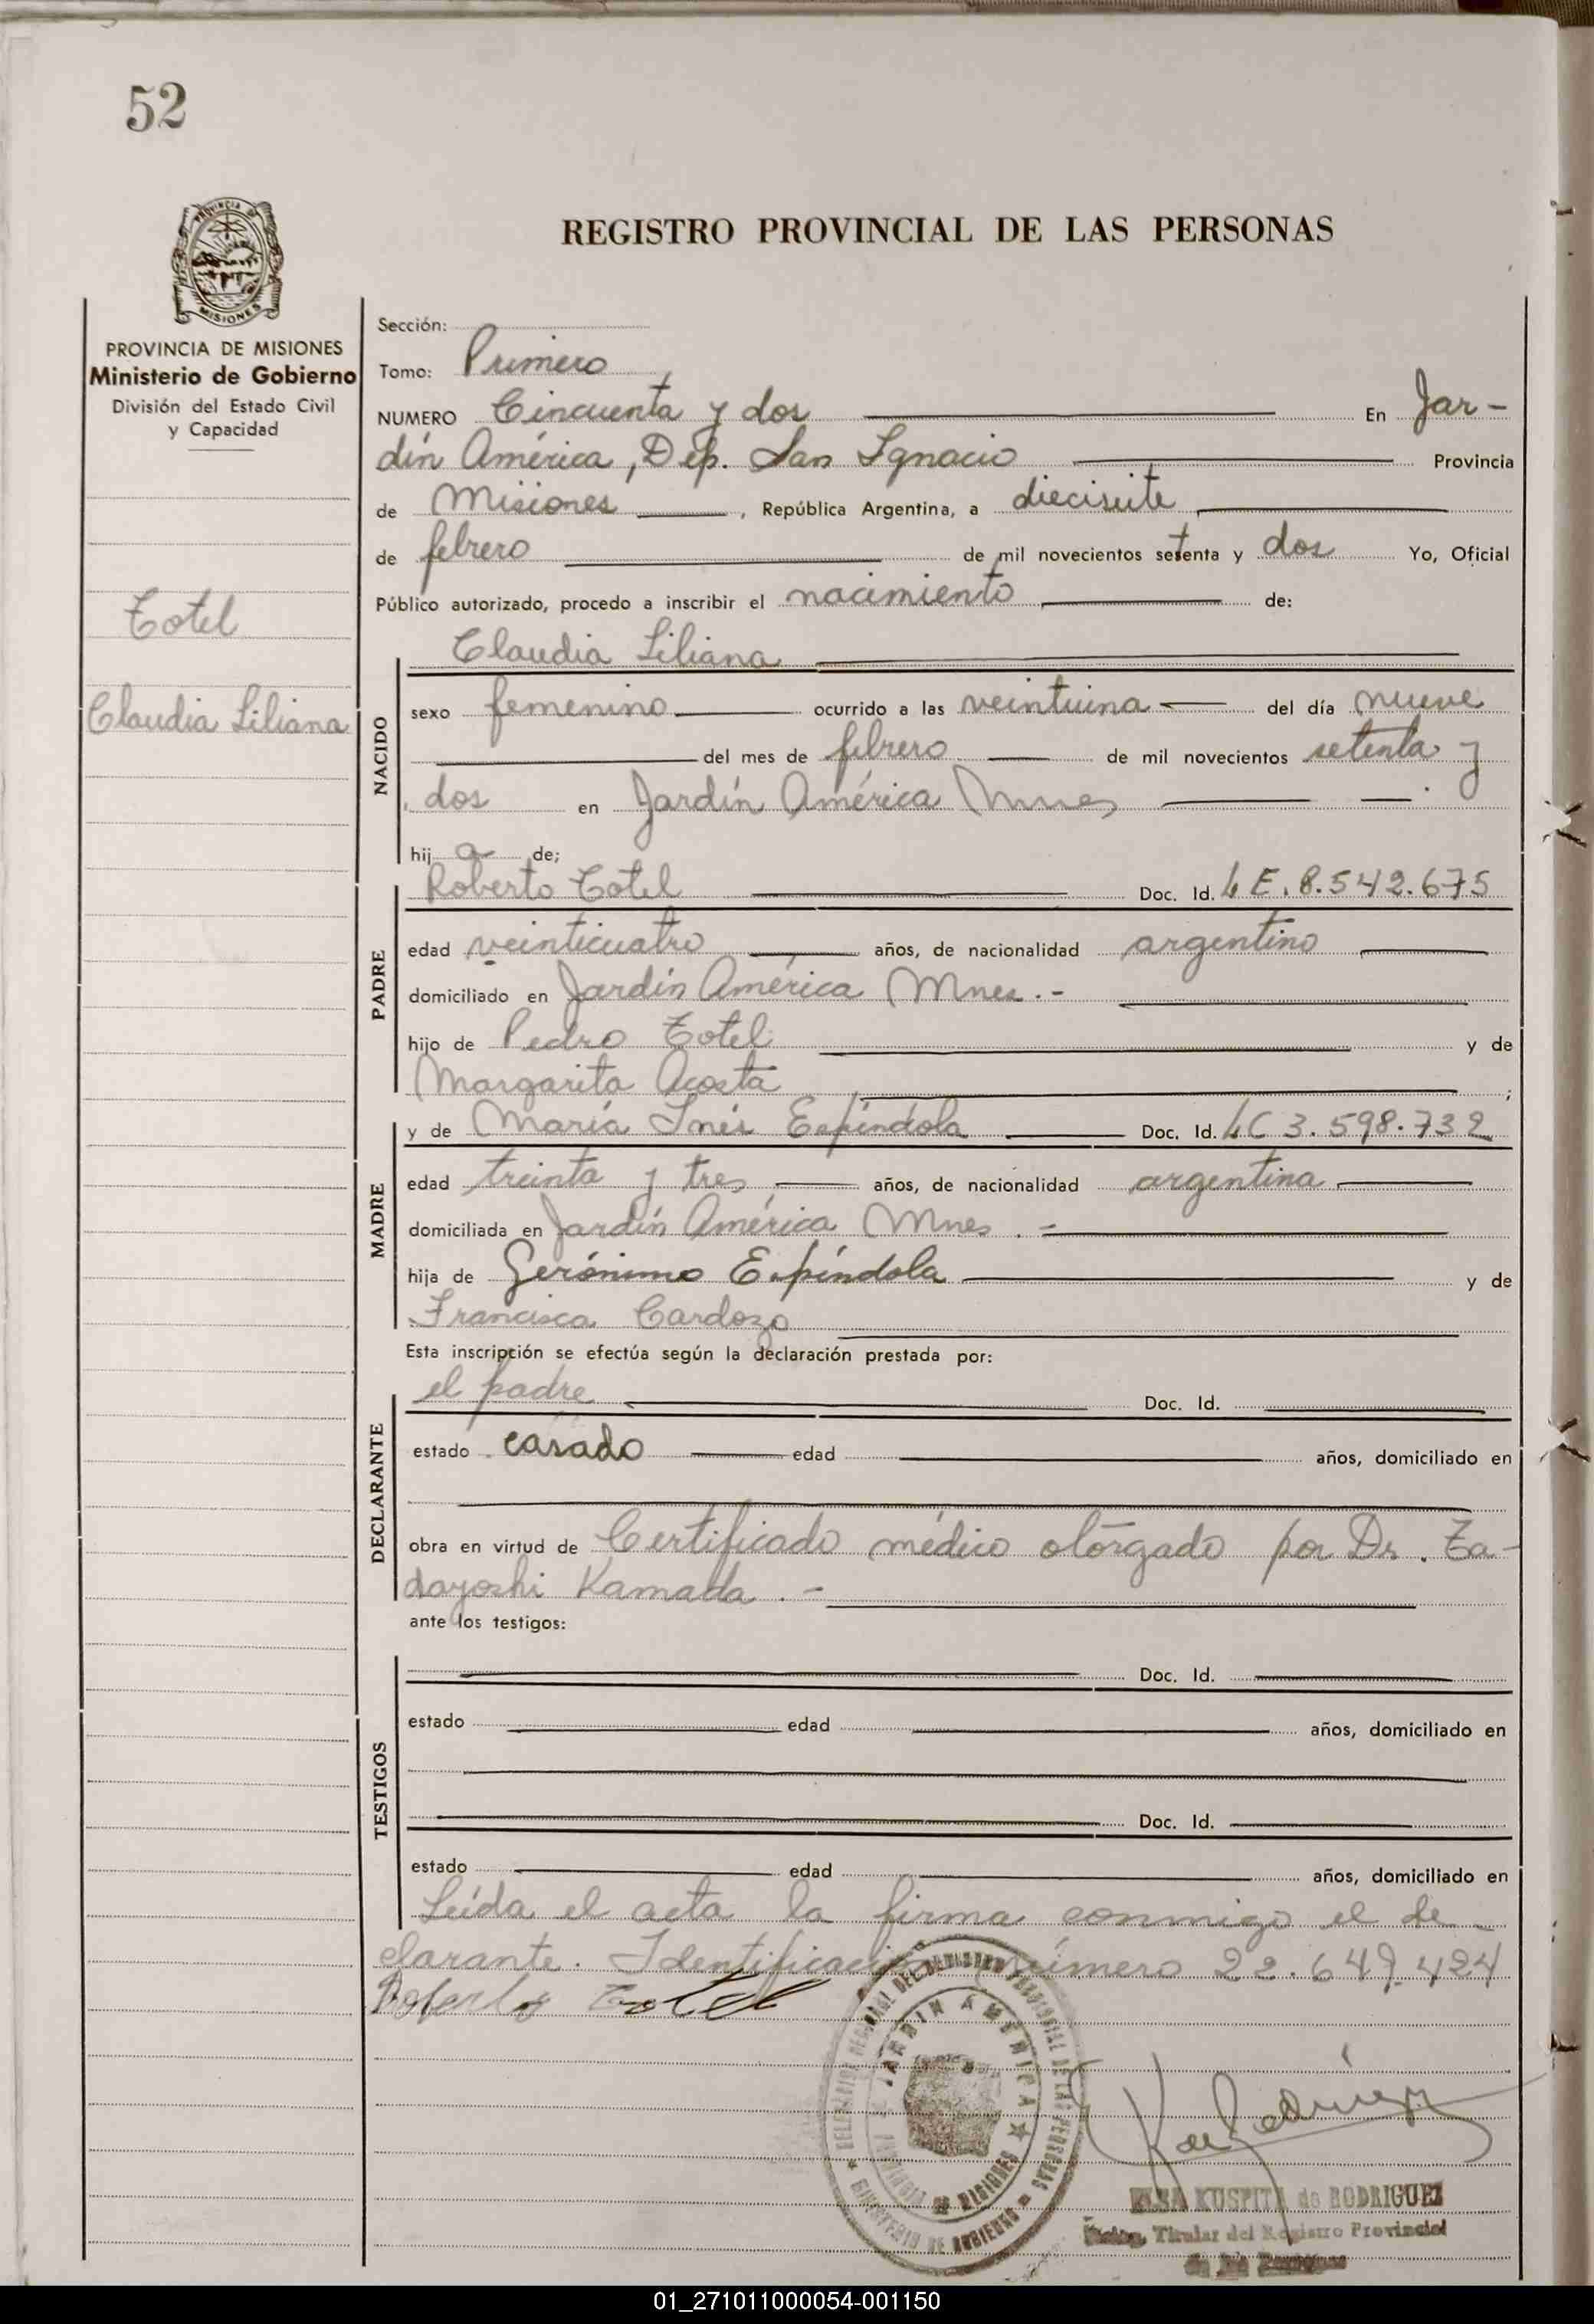 52
REGISTRO PROVINCIAL DE LAS PERSONAS
PROVINCIA DE
MISIONES
PROVINCIA DE MISIONES
Ministerio de Gobierno
División del Estado Civil
y Capacidad
Totel
Claudia Liliana
Sección:
Tomo: Primero
NUMERO Cincuenta y dos En Jar-
dín América, Dep. San Ignacio Provincia
de Misiones, República Argentina, a diecisiete
de febrero de mil novecientos setenta y dos Yo, Oficial
Público autorizado, procedo a inscribir el nacimiento de:
Claudia Liliana
NACIDO
sexo femenino ocurrido a las veintiuna del día nueve
del mes de febrero de mil novecientos setenta y
dos en Jardín América Mnes
hij a de;
Roberto Totel Doc. Id. LE. 8.542.675
PADRE
edad veinticuatro años, de nacionalidad argentino
domiciliado en Jardín América Mnes.-
hijo de Pedro Totel y de
Margarita Acosta ;
y de María Inés Espíndola Doc. Id. LC 3.598.732
MADRE
edad treinta y tres años, de nacionalidad argentina
domiciliada en Jardín América Mnes.-
hija de Gerónimo Espíndola y de
Francisca Cardozo
Esta inscripción se efectúa según la declaración prestada por:
el padre Doc. Id.
DECLARANTE
estado casado edad años, domiciliado en
obra en virtud de Certificado médico otorgado por Dr. Ta-
dayoshi Kamada.-
ante los testigos:
TESTIGOS
Doc. Id.
estado edad años, domiciliado en
Doc. Id.
estado edad años, domiciliado en
Leída el acta la firma conmigo el de-
clarante. Identificación número 22.649.424
Roberto Totel
DELEGACION REGIONAL DEL REGISTRO PROVINCIAL DE LAS PERSONAS
JARDIN AMERICA
PROVINCIA DE MISIONES
MINISTERIO DE GOBIERNO
ELSA KUSPITA de RODRIGUEZ
Titular del Registro Provincial
de las Personas
01_271011000054-001150